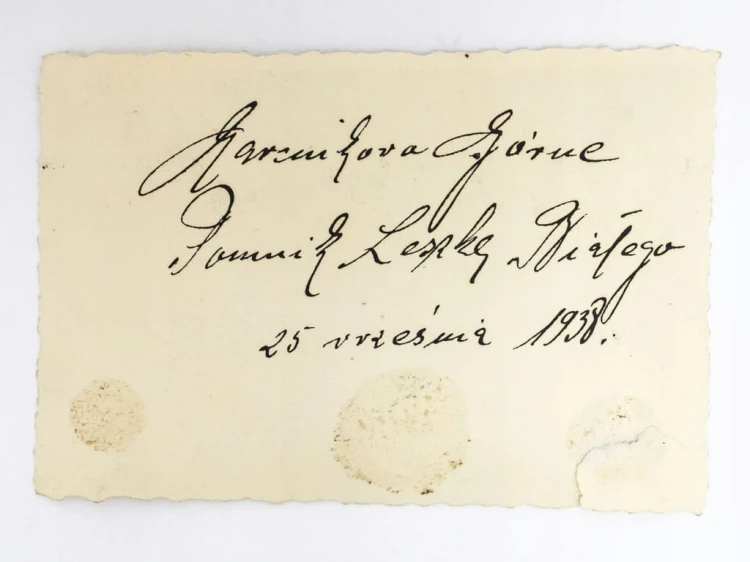 Marcinkowo Górne
Pomnik Leszka Białego
25 września 1938.